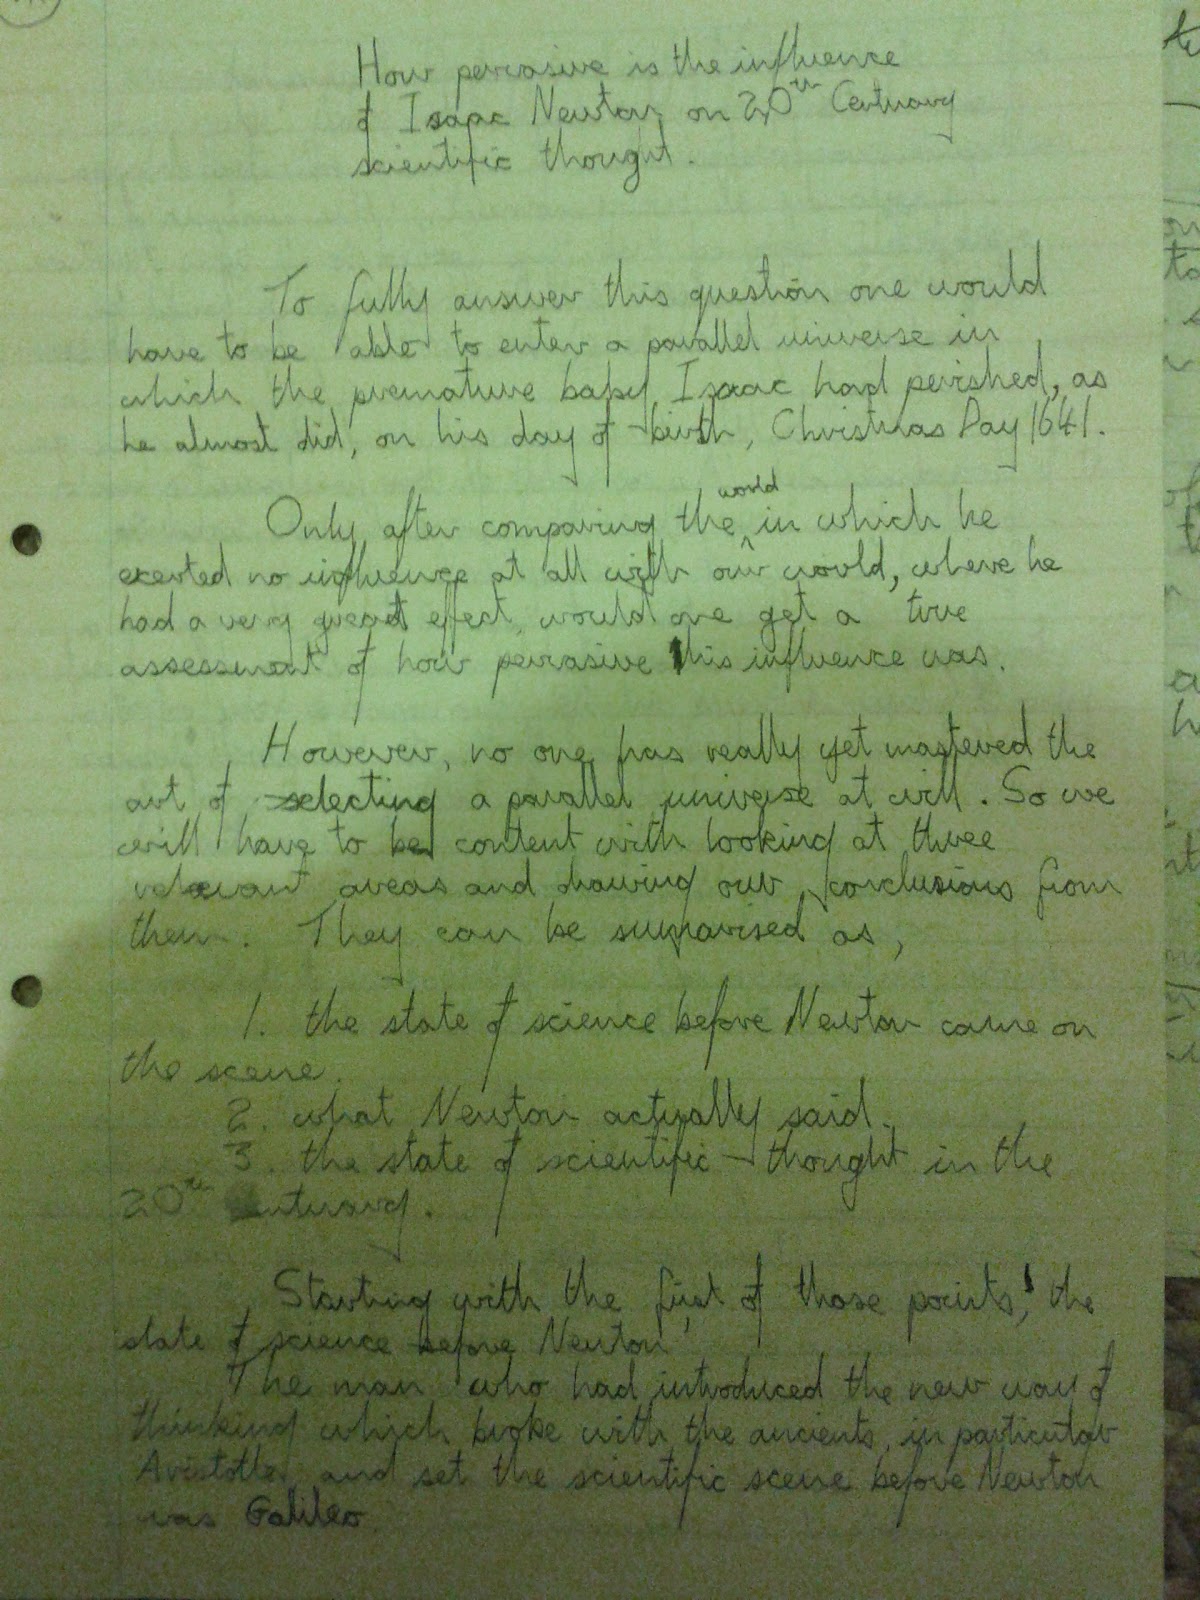 How pervasive is the influence
of Isaac Newton on 20th Centuary
scientific thought.
To fully answer this question one would
have to be able to enter a parallel universe in
which the premature baby Isaac had perished, as
he almost did, on his day of birth, Christmas Day 1641.
Only after comparing the world in which he
exerted no influence at all with our world, where he
had a very great effect, would one get a true
assessment of how pervasive this influence was.
However, no one has really yet mastered the
art of selecting a parallel universe at will. So we
will have to be content with looking at three
relevant areas and drawing our conclusions from
them. They can be summarised as,
1. the state of science before Newton came on
the scene.
2. what Newton actually said.
3. the state of scientific thought in the
20th entuary.
Starting with the first of those points, the
state of science before Newton
The man who had introduced the new way of
thinking which broke with the ancients, in particular
Aristotle, and set the scientific scene before Newton
was Galileo.